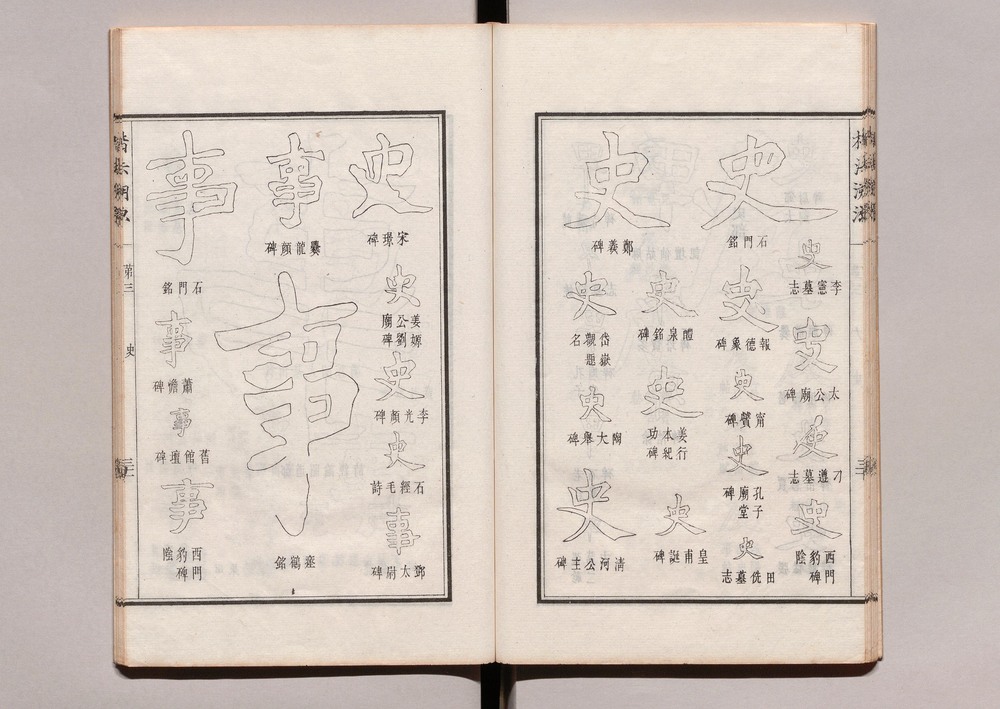 史
李憲墓志
史
太公廟碑
史
刁遵墓志
史
西門豹碑陰
史
石門銘
史
報德象碑
史
甯贙碑
史
孔子廟堂碑
史
田侁墓志
史
鄭義碑
史
醴泉銘
史
姜行本紀功碑
史
皇甫誕碑
史
岱嶽觀題名
史
陶大舉碑
史
清河公主碑
史
宋璟碑
史
姜嫄公劉廟碑
史
李光顏碑
史
石經毛詩
事
鄧太尉碑
事
爨龍顏碑
事
瘞鶴銘
事
石門銘
事
蕭憺碑
事
舊館壇碑
事
西門豹碑陰
第三
史